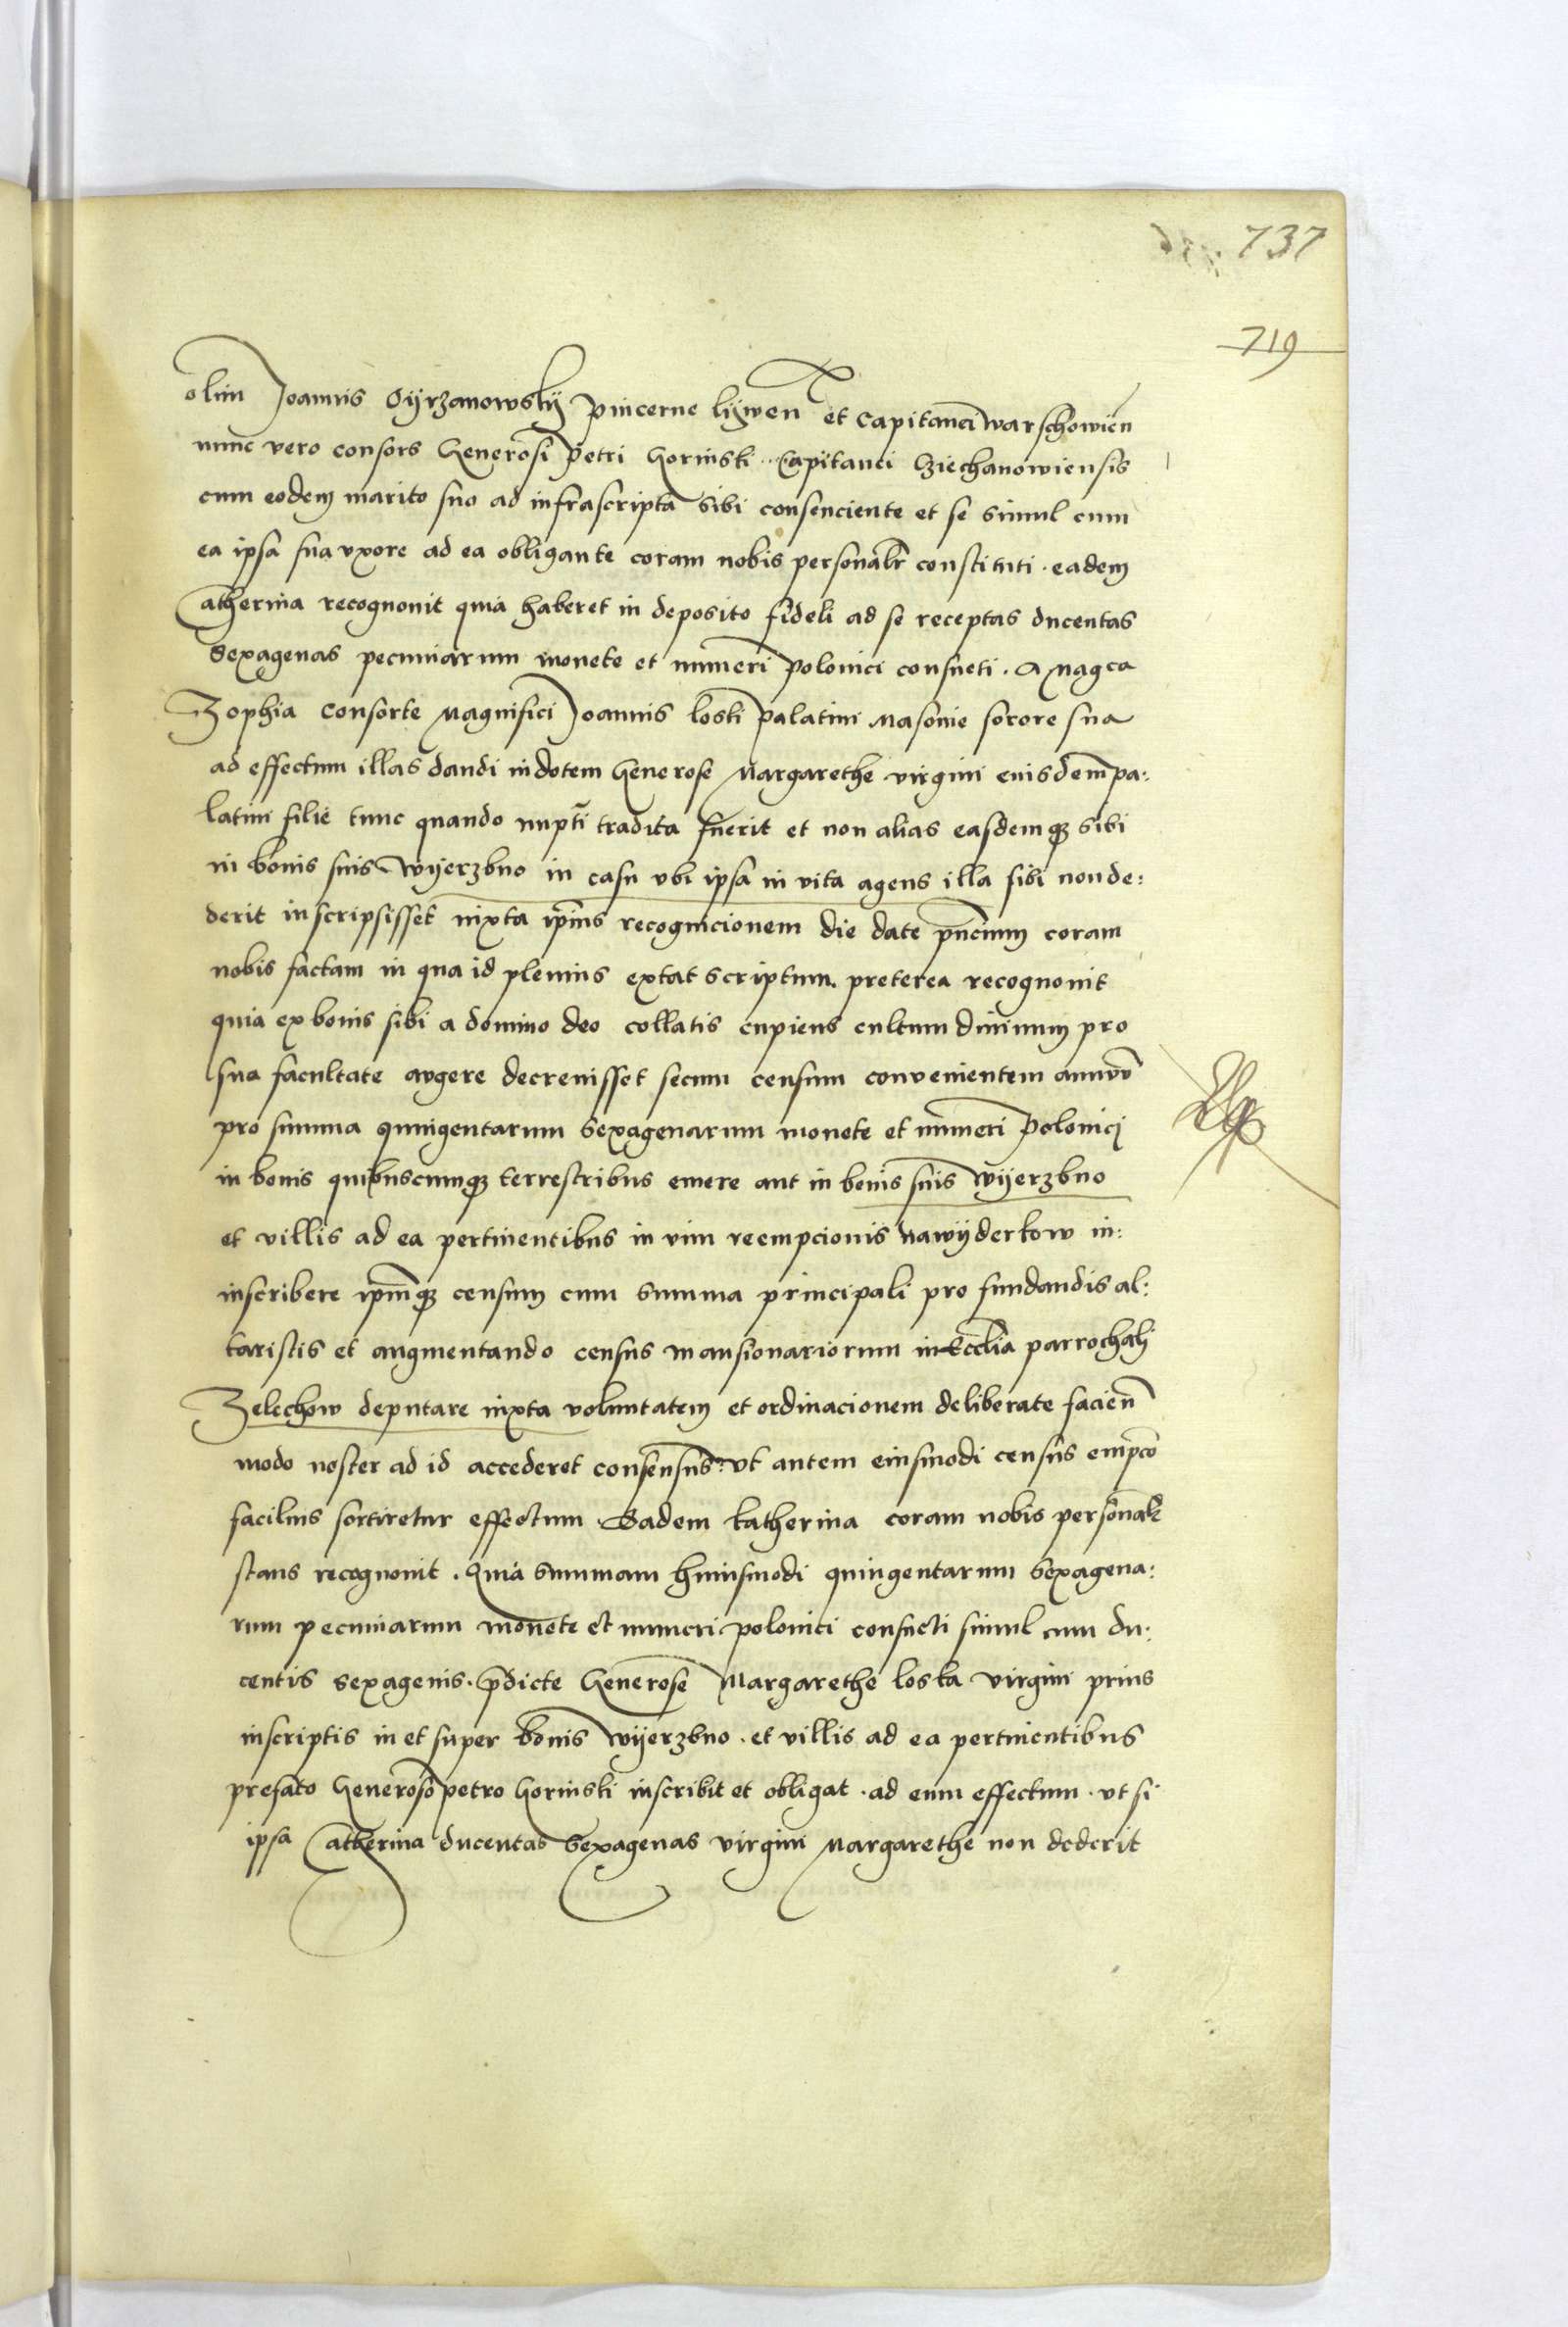 737
719
olim Joannis Oÿrzanowskÿ pincerne liÿwen et capitanei warschowien
nunc vero consors Generosi petri Gorinski Capitanei Cziechanowiensis
cum eodem marito suo ad infrascripta sibi consenciente et se simul cum
ea ipsa sua uxore ad ea obligante coram nobis personalr constituti. eadem
Catherina recognovit quia haberet in deposito fideli ad se receptas ducentas
Sexagenas pecuniarum monete et numeri polonici consueti. A Magca
Zophia consorte Magnifici Joannis loski palatini Masovie sorore sua
ad effectum illas dandi in dotem Generose Margarethe virgini euisdem pa:
latini filie tunc quando nupti tradita fuerit et non alias easdemq sibi
in bonis suis Wÿerzbno in casu ubi ipsa in vita agens illa sibi non de:
derit inscripsisset iuxta ipius recognicionem die date pncium coram
nobis factam in qua id plenius extat scriptum. preterea recognovit
quia ex bonis sibi a domino deo collatis cupiens cultum divinum pro
sua facultate augere decrevisset secum censum convenientem annuu
pro summa quingentarum Sexagenarum monete et numeri polonici
in bonis quibuscumq terrestribus emere aut in bonis suis Wÿerzbno
et villis ad ea pertinentibus in vim reempcionis nawÿderkow in:
inscribere ipmq censum cum summa principali pro fundandis al:
taristis et augmentando census mansionariorum in Ecclia parrochali
Zelechow deputare iuxta voluntatem et ordinacionem deliberate facien
modo noster ad id accederet consensus: ut autem eiusmodi census empco
facilius sortiretur effectum. Eadem katherina coram nobis personalr
stans recognovit. Quia summam huiusmodi quingentarum Sexagena:
rum pecuniarum monete et numeri polonici consueti simul cum du:
centis sexagenis. pdicte Generose Margarethe loska virgini prius
inscriptis in et super bonis Wÿerzbno. et villis ad ea pertinentibus
prefato Generoso petro Gorinski inscribit et obligat. ad eum effectum. ut si
ipsa Catherina ducentas Sexagenas virgini Margarethe non dederit